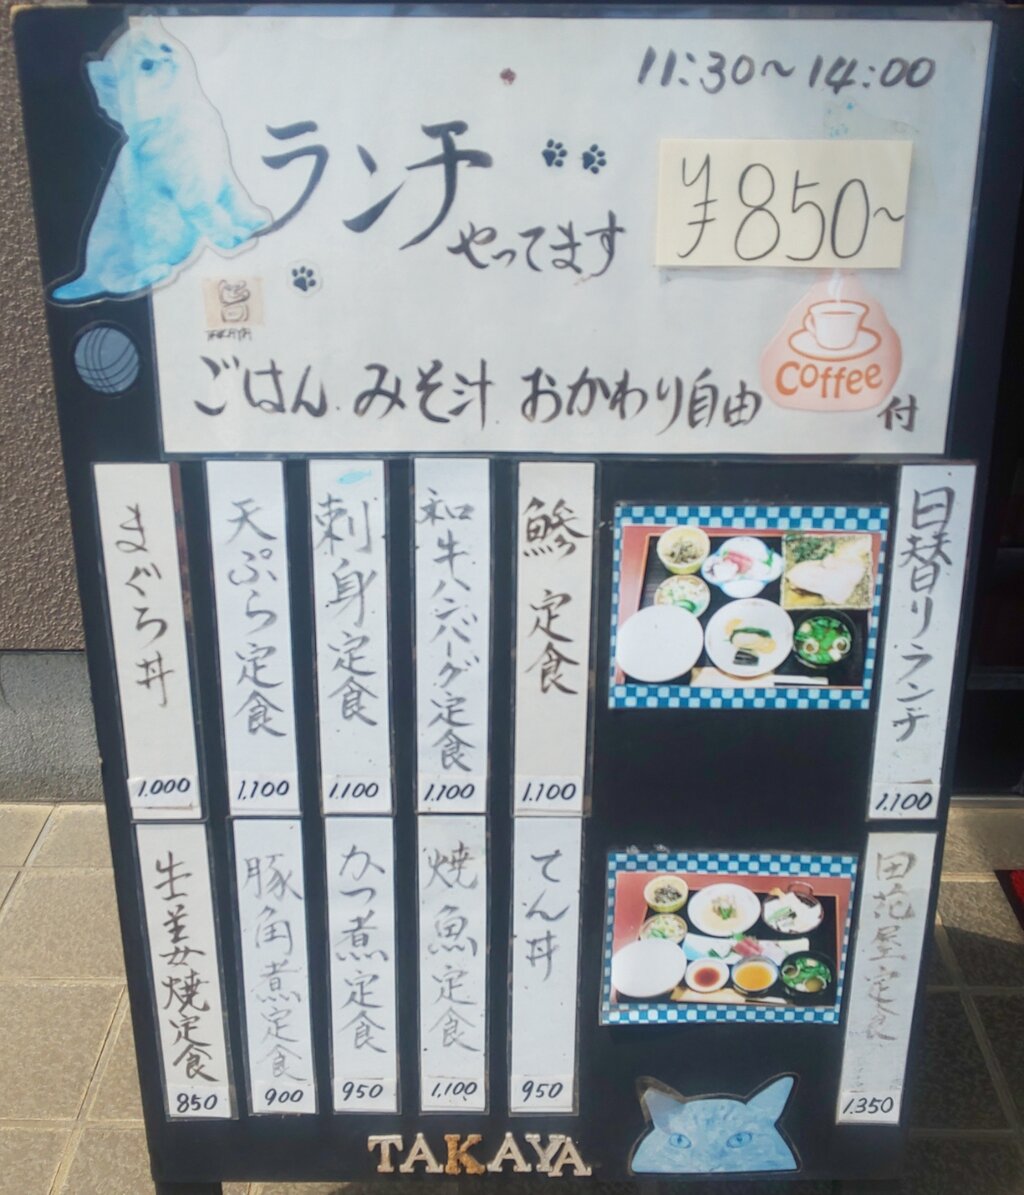 11:30〜14:00
ランチ
やってます
¥850〜
TAKAYA
ごはん みそ汁 おかわり自由
coffee
付
日替りランチ
1.100
鯵定食
1.100
和牛ハンバーグ定食
1.100
刺身定食
1.100
天ぷら定食
1.100
まぐろ丼
1.000
田花屋定食
1.350
てん丼
950
焼魚定食
1.100
かつ煮定食
950
豚角煮定食
900
生姜焼定食
850
TAKAYA